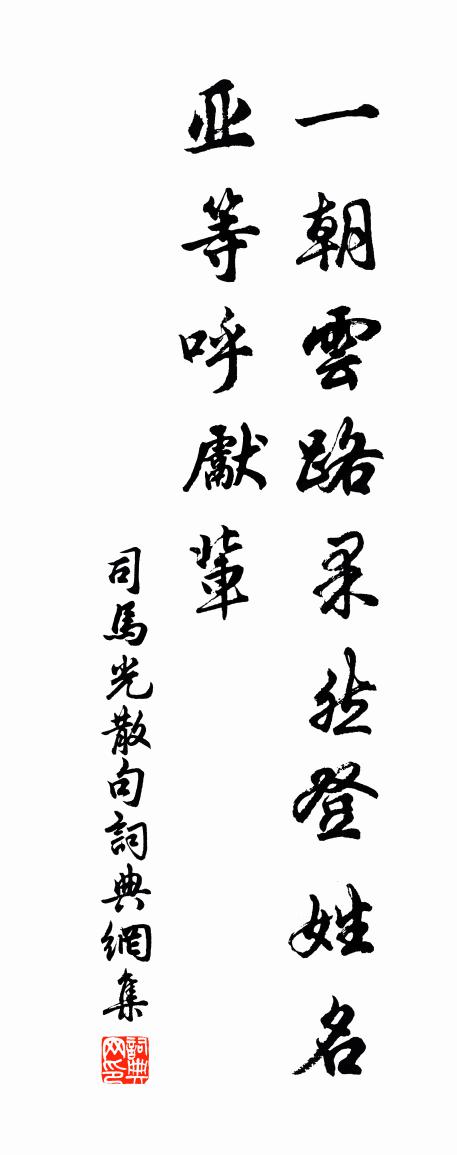 一朝雲路果然登姓名
亚等呼獻輩
司馬光散句詞典網集
詞典
网印